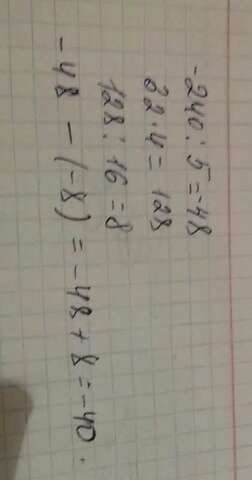 -240:5=-48
32·4=128
128:16=8
-48-(-8)=-48+8=-40.